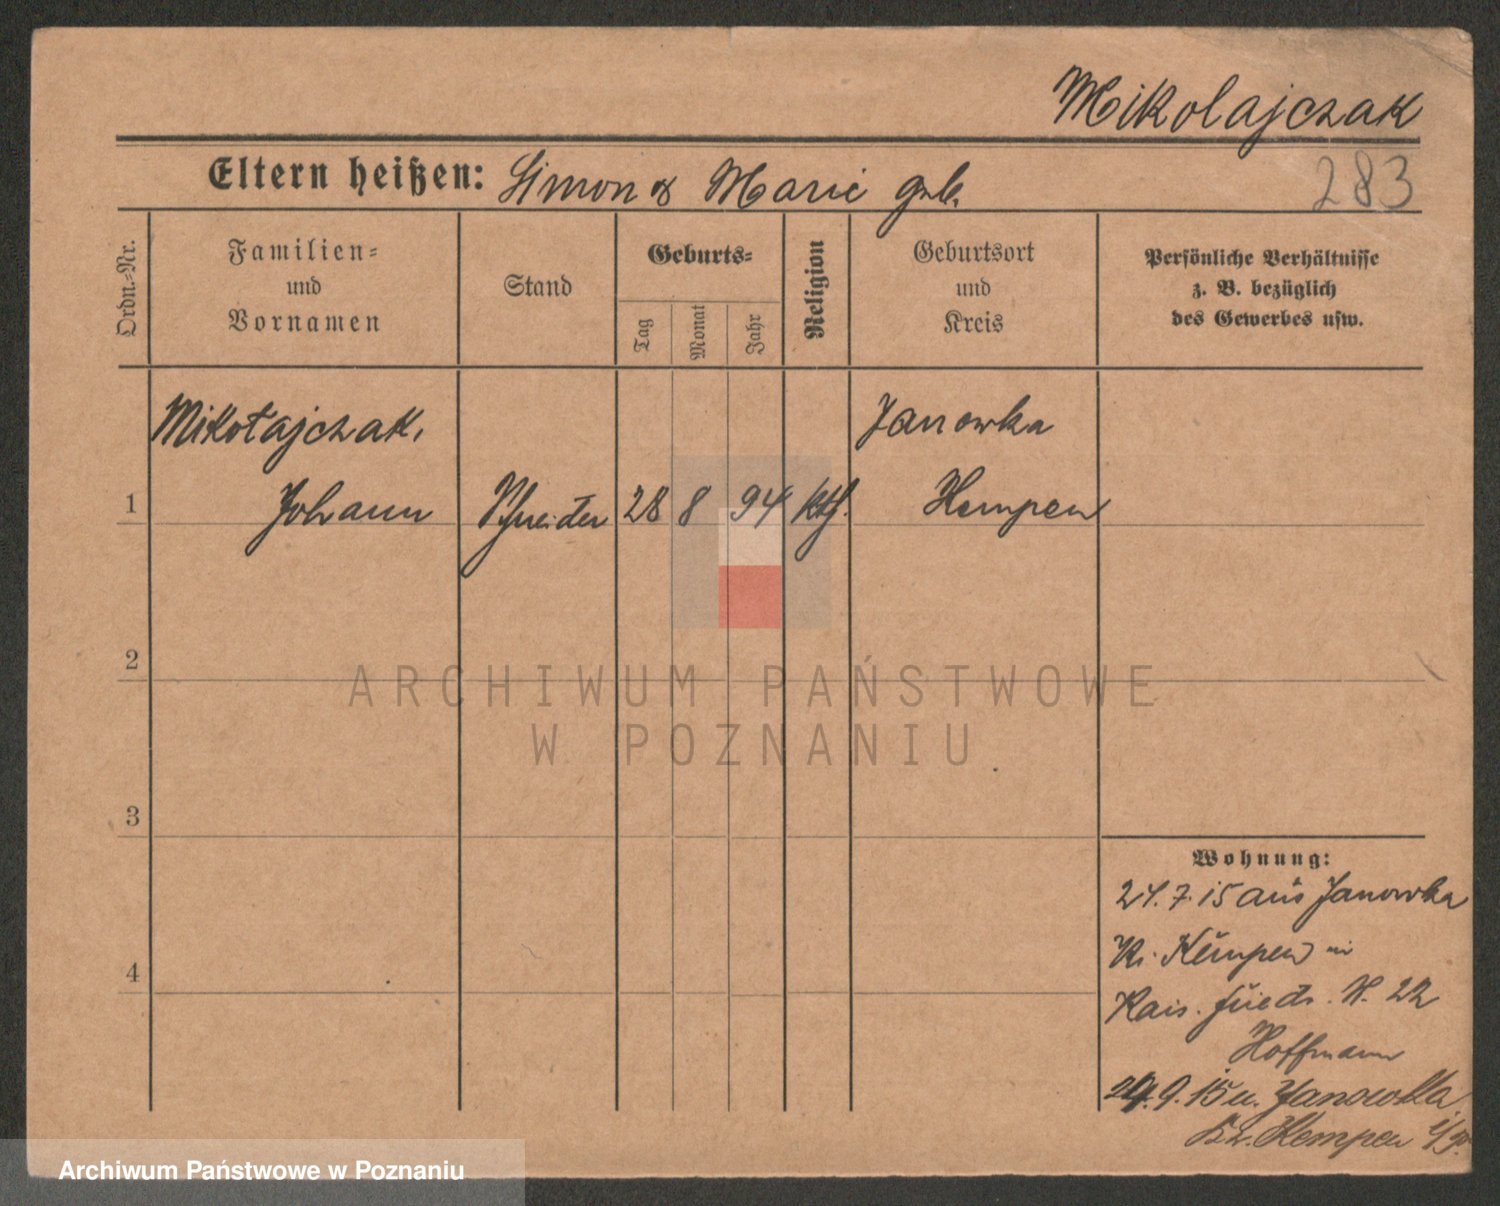 Mikolajczak
283
Eltern heißen: Simon & Marie geb.
Ordn.-Nr.
Familien-
und
Vornamen
Stand
Geburts-
Tag
Monat
Jahr
Religion
Geburtsort
und
Kreis
Persönliche Verhältnisse
z. B. bezüglich
des Gewerbes usw.
Mikołajczak, Janowka
1 Johann Schneider 28 8 94 kth. Kempen
2
3
4
Wohnung:
21.7.15 aus Janowka
Kr. Kempen in
Kais. Friedr. W. 22
Hoffmann
9.15 n. Janowka
Kr. Kempen
ARCHIWUM PAŃSTWOWE
W POZNANIU
Archiwum Państwowe w Poznaniu